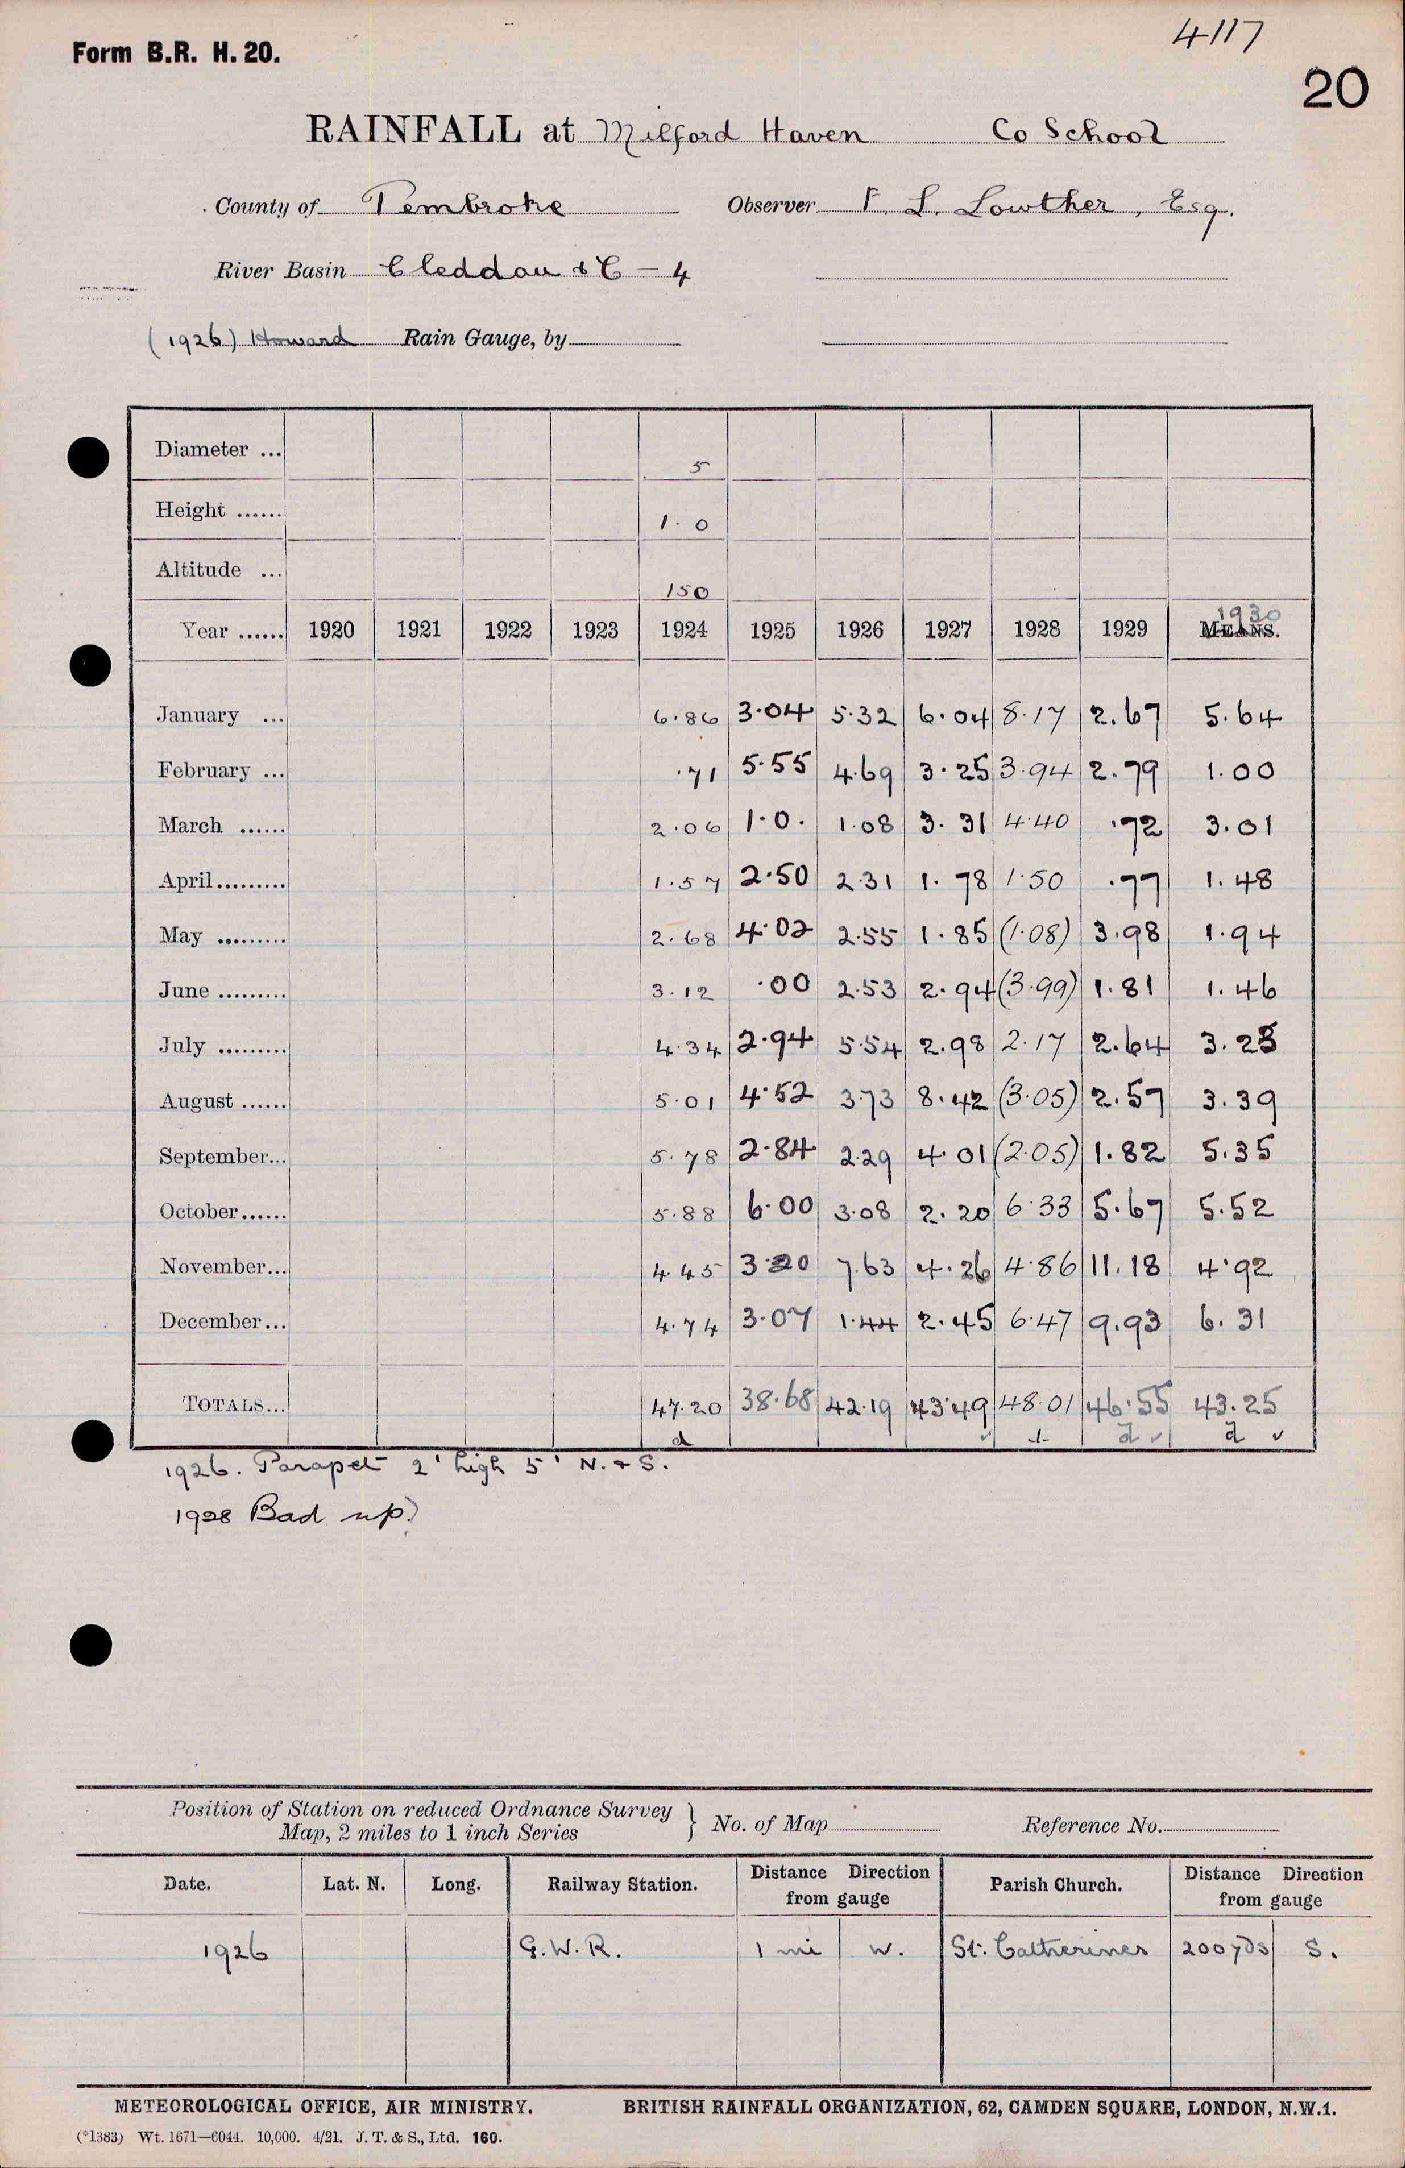 4117
Form B.R. H. 20.
20
RAINFALL at Milford Haven Co School
County of Pembroke Observer L. Lowther, Esq.
River Basin Cleddau & C - 4
(1926) Howard Rain Gauge, by
Diameter ... 5
Height ...... 1.0
Altitude ... 150
1930
Year ...... 1920 1921 1922 1923 1924 1925 1926 1927 1928 1929 MEANS.
January ... 6.86 3.04 5.32 6.04 8.17 2.67 5.64
February ... .71 5.55 4.69 3.25 3.94 2.79 1.00
March ...... 2.06 1.0. 1.08 3.31 4.40 .72 3.01
April......... 1.57 2.50 2.31 1.78 1.50 .77 1.48
May ......... 2.68 4.02 2.55 1.85 (1.08) 3.98 1.94
June ......... 3.12 .00 2.53 2.94 (3.99) 1.81 1.46
July ......... 4.34 2.94 5.54 2.98 2.17 2.64 3.23
August ...... 5.01 4.52 3.73 8.42 (3.05) 2.57 3.39
September... 5.78 2.84 2.29 4.01 (2.05) 1.82 5.35
October...... 5.88 6.00 3.08 2.20 6.33 5.67 5.52
November... 4.45 3.20 7.63 4.26 4.86 11.18 4.92
December... 4.74 3.07 1.44 2.45 6.47 9.93 6.31
TOTALS... 47.20 38.68 42.19 43.49 48.01 46.55 43.25
d d d
1926. Parapet 2' high 5' N. & S.
1928 Bad up)
Position of Station on reduced Ordnance Survey
Map, 2 miles to 1 inch Series } No. of Map Reference No.
Date. Lat. N. Long. Railway Station. Distance Direction from gauge Parish Church. Distance Direction from gauge
1926 G.W.R. 1 mi W. St. Catherines 200yds S.
METEOROLOGICAL OFFICE, AIR MINISTRY. BRITISH RAINFALL ORGANIZATION, 62, CAMDEN SQUARE, LONDON, N.W.1.
(*1383) Wt. 1671—6044. 10,000. 4/21. J. T. & S., Ltd. 160.